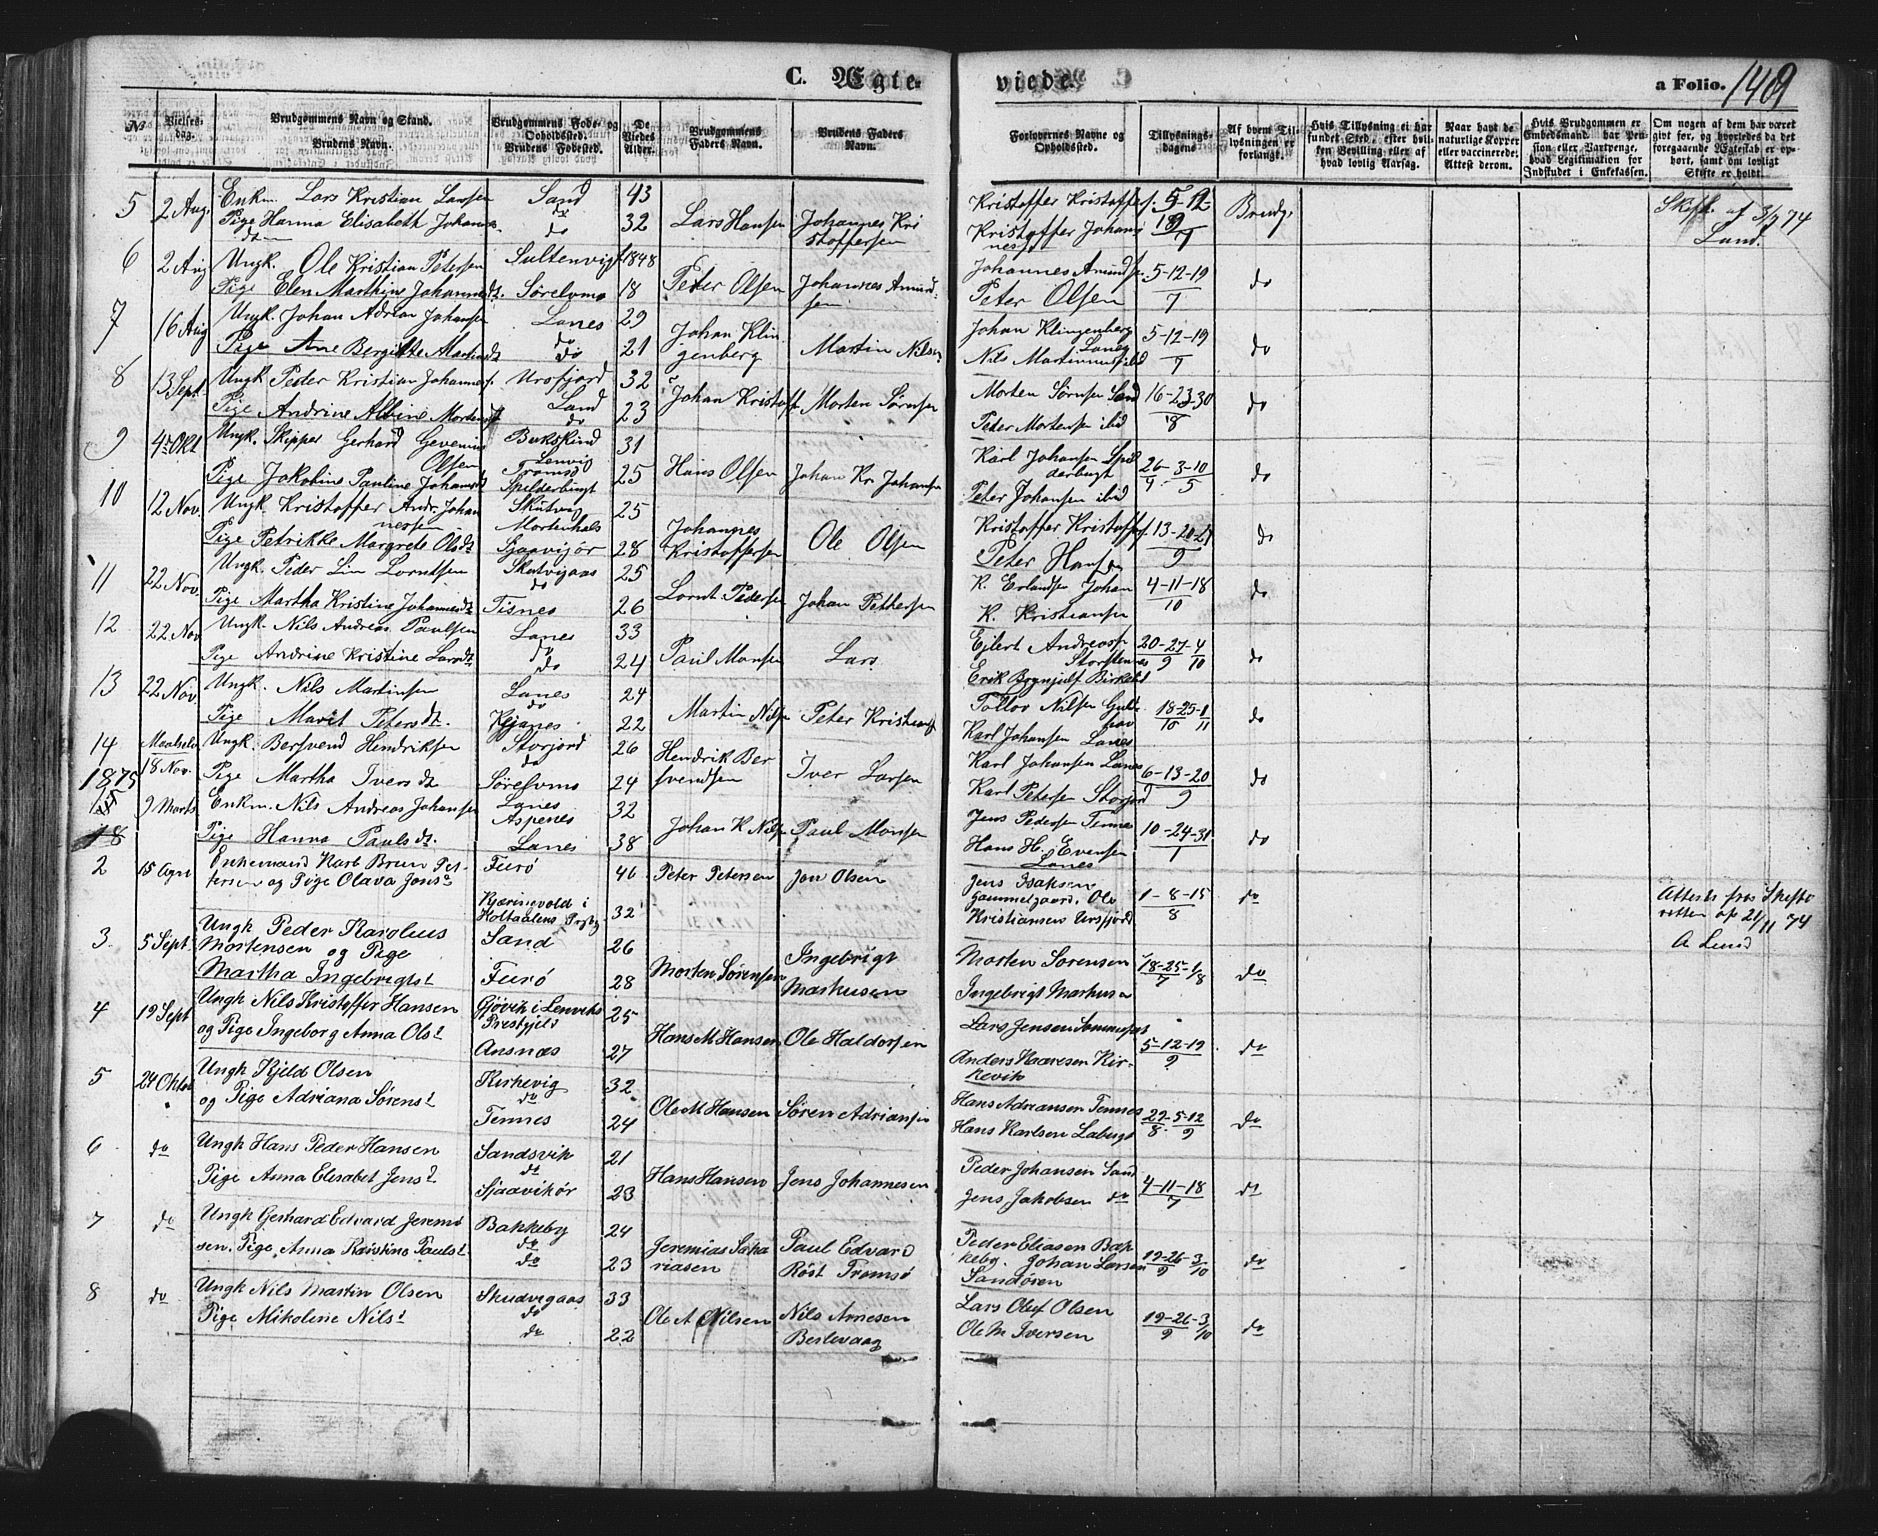 C. Ægte-
viede.
a Folio.
149
№
Vielses-
dag.
Brudgommens Navn og Stand.
Brudens Navn.
Brudgommens Føde- og
Opholdssted.
Brudens Fødested.
De
Viedes
Alder.
Brudgommens
Faders Navn.
Brudens Faders
Navn.
Forlovernes Navne og
Opholdssted.
Tillysnings-
dagene
Af hvem Til-
lysningen er
forlangt.
Hvis Tillysning ei har
fundet Sted, efter hvil-
ken Bevilling eller af
hvad lovlig Aarsag.
Naar havt de
naturlige Kopper
eller vaccinerede;
Attest derom.
Hvis Brudgommen er
Embedsmand, har Pen-
sion eller Vartpenge,
hvad Legitimation for
Indskudet i Enkekassen.
Om nogen af dem har været
gift før, og hvorledes da det
foregaaende Ægteskab er op-
hørt, samt om lovligt
Skifte er holdt.
5 2 Aug. Enkm. Lars Kristian Larsen Sand 43 Lars Hansen Johannes Kri
Pige Hanna Elisabeth Johannes do do 32 stoffersen
Kristoffer Kristoffers. 5-12 Brudg. Skift. af 3/7 74
Kristoffer Johan 19/7 Lund.
nesf
6 2 Aug Ungk. Ole Kristian Petersen Sultenvig 1848 Peter Olsen Johannes Amund
Pige Elen Marthine Johannesdt. Sørelvmo 18 sen
Johannes Amunds. 5-12-19 do
Peter Olsen 7
7 16 Aug Ungk. Johan Adrian Johansen Lanes 29 Johan Klin Martin Nilsen
do
Pige Ane Bergitte Martinsdt do 21 genberg
Johan Klingenberg 5-12-19 do
Lanes
Nils Martinnusf ibid 7
8 13 Sept. Ungk Peder Kristian Johannesf. Ursfjord 32 Johan Kristoff Morten Sørnsen
Sand
Pige Andrine Albine Mortensdt do 23
Morten Sørnsen Sand 16-23-30 do
Peder Mortensen ibid 8
9 4de Okt Ungk. Skipper Gerhard Gevenius Bukskind 31 Hans Olsen Johan Kr Johansen
Olsen Lenvig
Tromsø
Pige Jakobine Pauline Johansdt Spilderbugt 25
Karl Johansen Spil 26-3-10 do
derbugt
Peter Johansen ibid 4 5
10 12 Nov. Ungk Kristoffer Andr. Johan Skutvig 25 Johannes Ole Olsen
nessen Mortenhals
Pige Petrikke Margrete Olsdt Sjaavigør 28 Kristoffersen
Kristoffer Kristoffers. 13-20-27 do
Peter Hansen 9
11 22 Nov. Ungk. Peder Lin Lorntsen Skutvigaas 25 Lornt Pedersen Johan Pettersen
do
Pige Martha Kristine Johannesdt Tisnes 26
K. Erlandsen Johan 4-11-18 do
K. Kristiansen 10
12 22 Nov Ungk. Nils Andreas Paulsen Lanes 33 Paul Monsen Lars
do
Pige Andrine Kristine Larsdt do 24
Ejlert Andreasf 20-27-4 do
Storstennes 9 10
Erik Brynjulf Birkelid
13 22 Nov Ungk. Nils Martinsen Lanes 24 Martin Nilsen Peter Kristiansf
do
Pige Marit Petersdt. Kjanes 22
Tollov Nilsen Guld 18-25-1 do
hav 10 11
Karl Johansen Lanes
14 Maalselv Ungk. Bersvend Hendriksen Storjord 26 Hendrik Ber Iver Larsen
18 Nov. do
Pige Martha Iversdt Sørelvmo 24 svendsen
Karl Johansen Lanes 6-13-20 do
Karl Petersen Storjord 9
1875
9 Marts Enkm. Nils Andreas Johansen Lanes 32 Johan K Nilsen Paul Monsen
Aspenes
Pige Hanna Paulsdt. Lanes 38
Jens Pedersen Tennes 10-24-31 do
Hans H. Evensen 1
Lanes
2 15 Agu Enkemand Karl Brun Pet- Furø 46 Peter Petersen Jon Olsen
tersen og Pige Olava Jonsdt
Kjærinsvold i
Holtaalens Prstg. 32
Jens Isaksen
Gammelgaard, Ole 1-8-15 do
Kristiansen Ursfjord 8
Attest fra Skifte
retten af 21/11 74
A Lund
3 5 Sept. Ungk Peder Karolius Sand 26 Morten Sørensen Ingebrigt
Mortensen og Pige
Martha Ingebrigtst Furø 28 Markusen
Morten Sørensen 18-25-1/8 do
Ingebrigt Markusen 7
4 19 Sept Ungk Nils Kristoffer Hansen Gjøvik i Lenviks 25 Hans M Hansen Ole Haldorsen
Prestgjeld
og Pige Ingeborg Anna Olst Ansnæs 27
Lars Jensen Sommersæt 5-12-19 do
Anders Haavesen Kir- 9
kevik
5 24 Oktob Ungk Kjeld Olsen Kirkevig 32 Ole M Hansen Søren Adriansen
do
og Pige Adriana Sørenst Tennes 24
Hans Adriansen Tennes 29-5-12 do
Hans Karlsen Laberg 8 9
6 do Ungk Hans Peder Hansen Sandsvik 21 Hans Hansen Jens Johannesen
do
Pige Anna Elisabet Jenst Sjaavikør 23
Peder Johansen Sand 4-11-18 do
Jens Jakobsen do 7
7 do Ungk Gerhard Edvard Jeremia Bakkeby 24 Jeremias Saka Paul Edvard
do
sen. Pige Anna Kristine Paulst do 23 riasen Röst Tromsø
Peder Eliasen Bak 19-26-3/10 do
keby. Johan Larsen 9
Sandören
8 do Ungk Nils Martin Olsen Skudvigaas 33 Ole A Nilsen Nils Arnesen
do
Pige Mikoline Nilst do 22 Berlevaag
Lars Oluf Olsen 19-26-3/10 do
Ole M Iversen 9